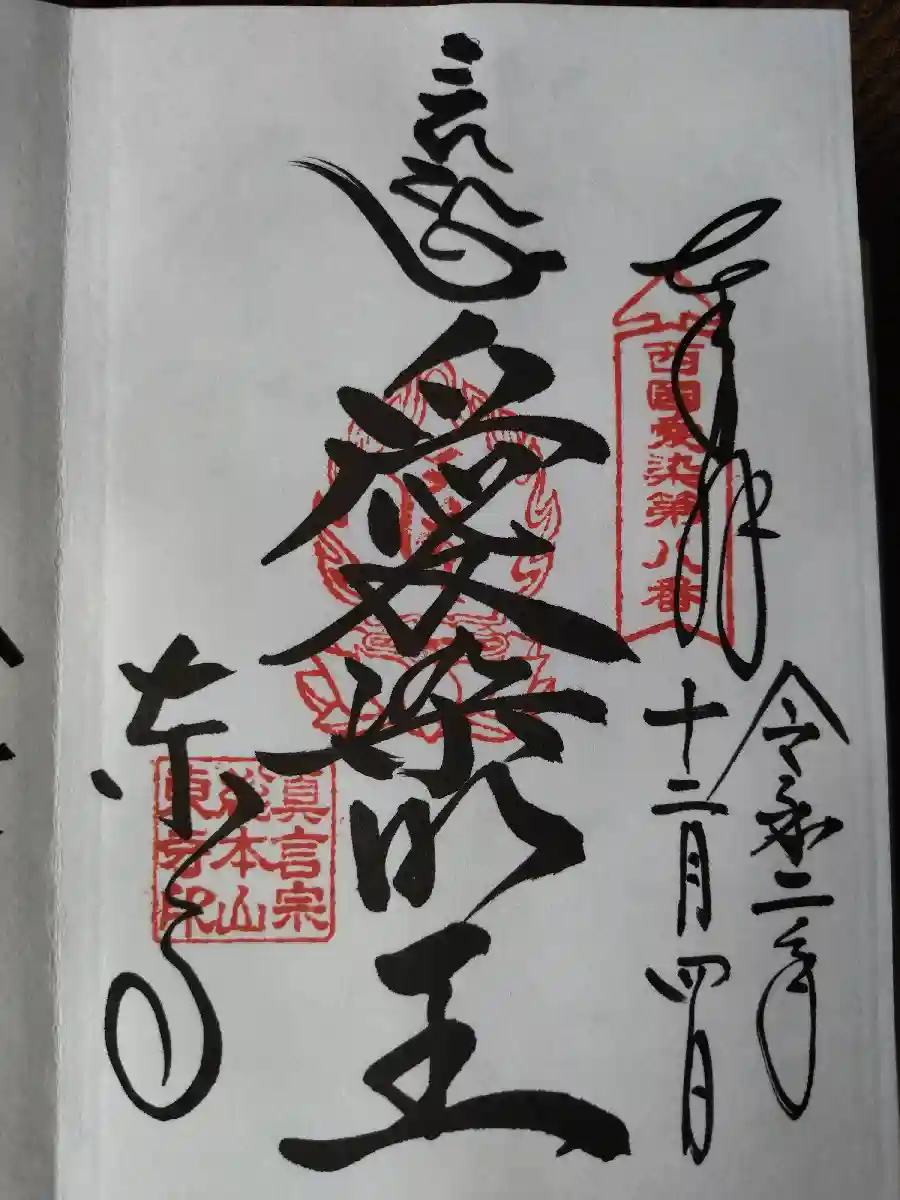 奉拝
西國愛染第八番
令和二年
十二月四日
愛染明王
真言宗
総本山
東寺印
東寺